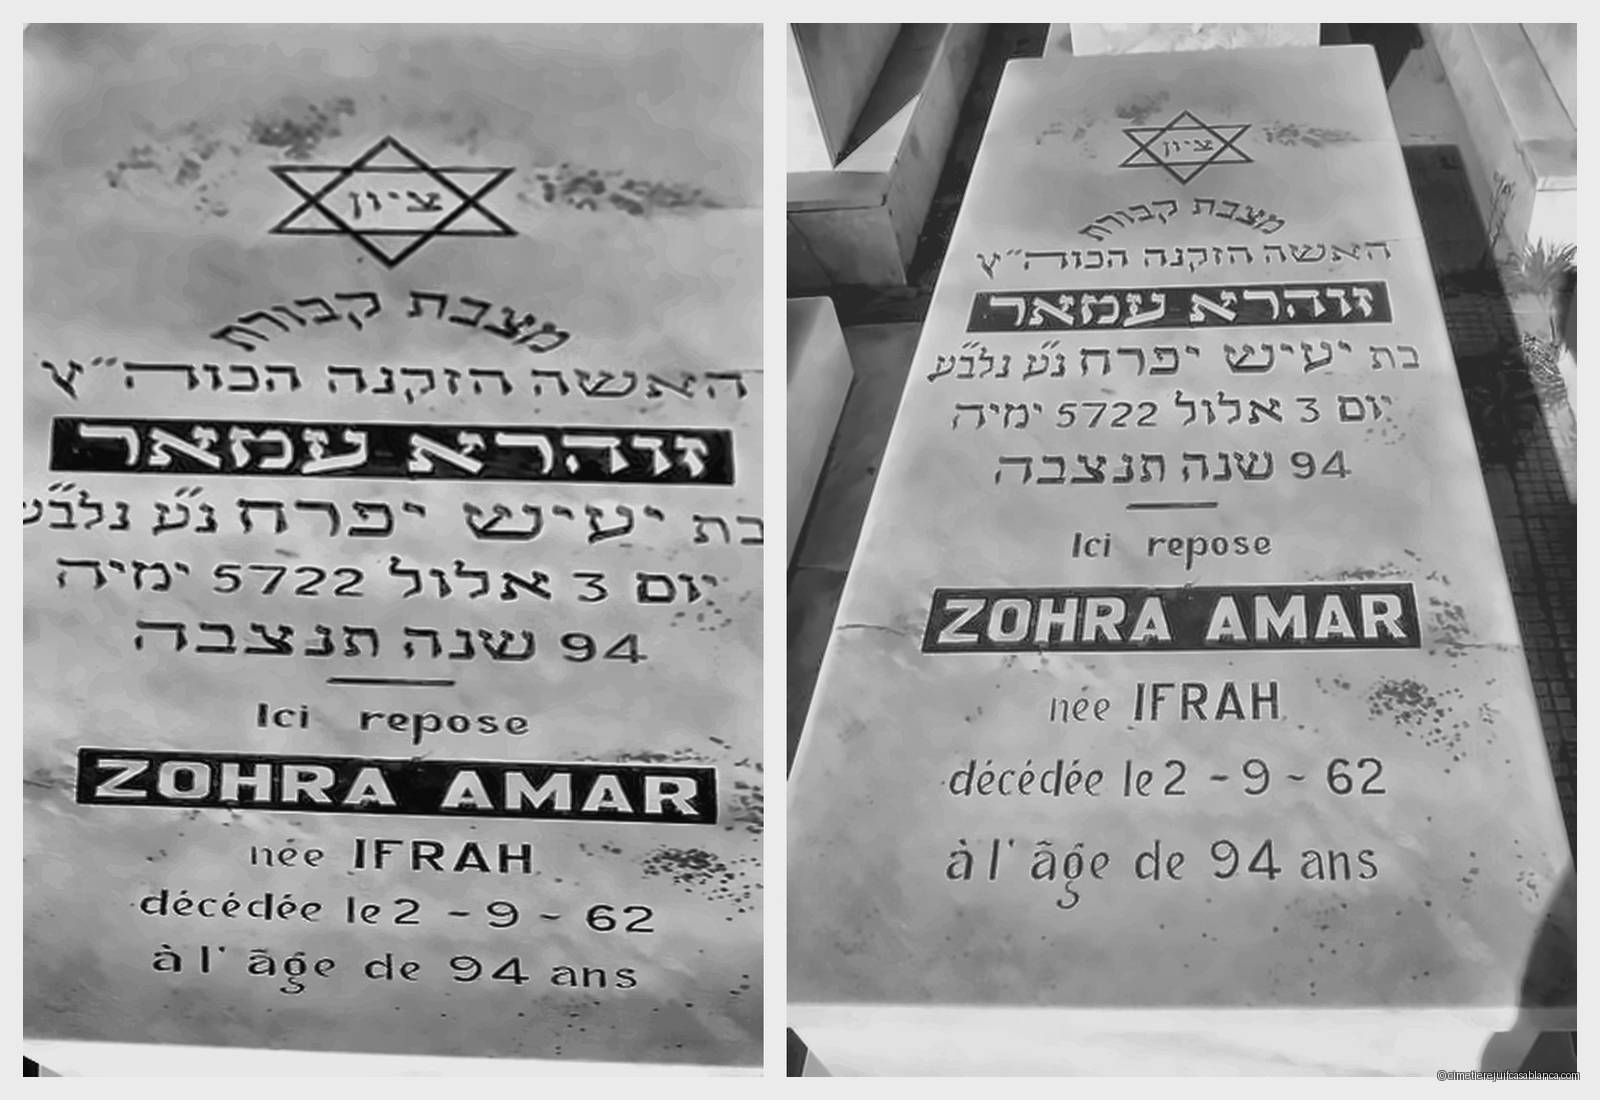 ציון
מצבת קבורת
האשה הזקנה הכוה״ץ
זוהרא עמאר
בת יעיש יפרח נ״ע נלב״ע
יום 3 אלול 5722 ימיה
94 שנה תנצבה
Ici repose
ZOHRA AMAR
née IFRAH
décédée le 2 - 9 - 62
à l' âge de 94 ans
ציון
מצבת קבורת
האשה הזקנה הכוה״ץ
זוהרא עמאר
בת יעיש יפרח נ״ע נלב״ע
יום 3 אלול 5722 ימיה
94 שנה תנצבה
Ici repose
ZOHRA AMAR
née IFRAH
décédée le 2 - 9 - 62
à l' âge de 94 ans
©cimetierejuifcasablanca.com